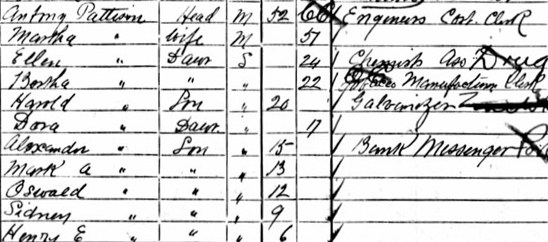 Antony Pattison Head M 52 Engineers Cost Clerk
Martha " Wife M 51
Ellen " Daur S 24 Chemists Ass Drug
Bertha " " " 22 Tobacco Manufacturers Clerk
Harold " Son " 20 Galvanizer
Dora " Daur " 17
Alexander " Son " 15 Bank Messenger
Mark A " " " 13
Oswald " " " 12
Sidney " " " 9
Henry E " " " 6